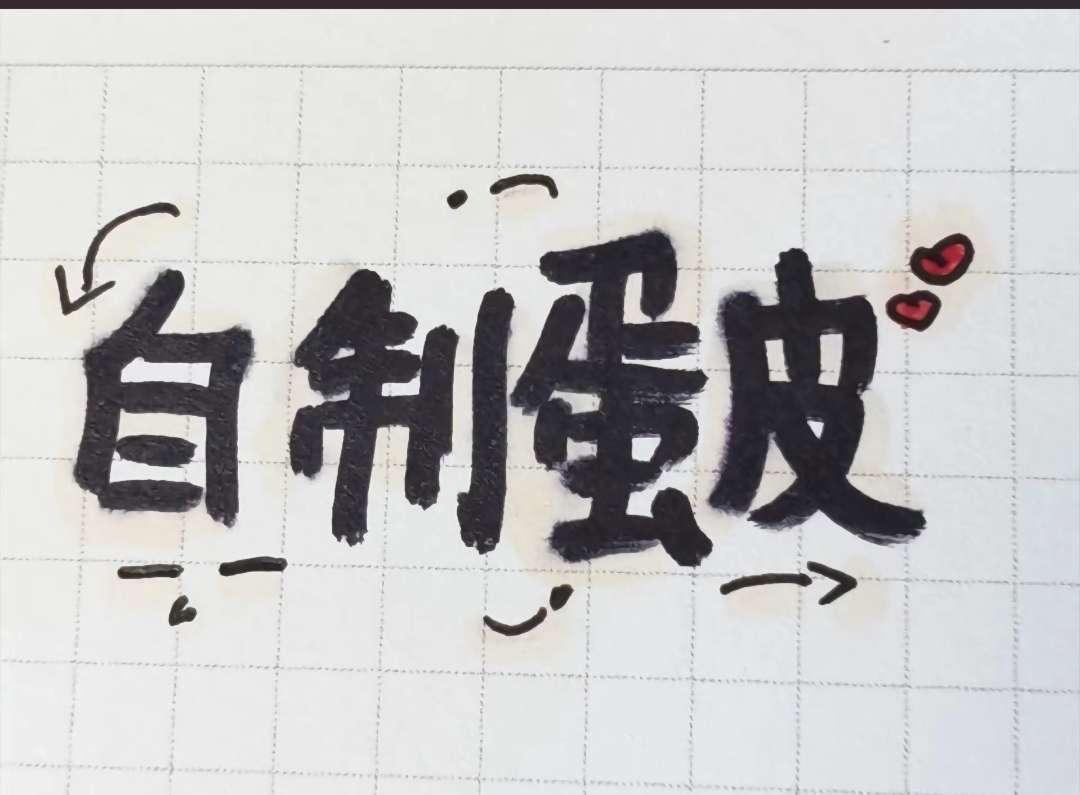 自制蛋皮